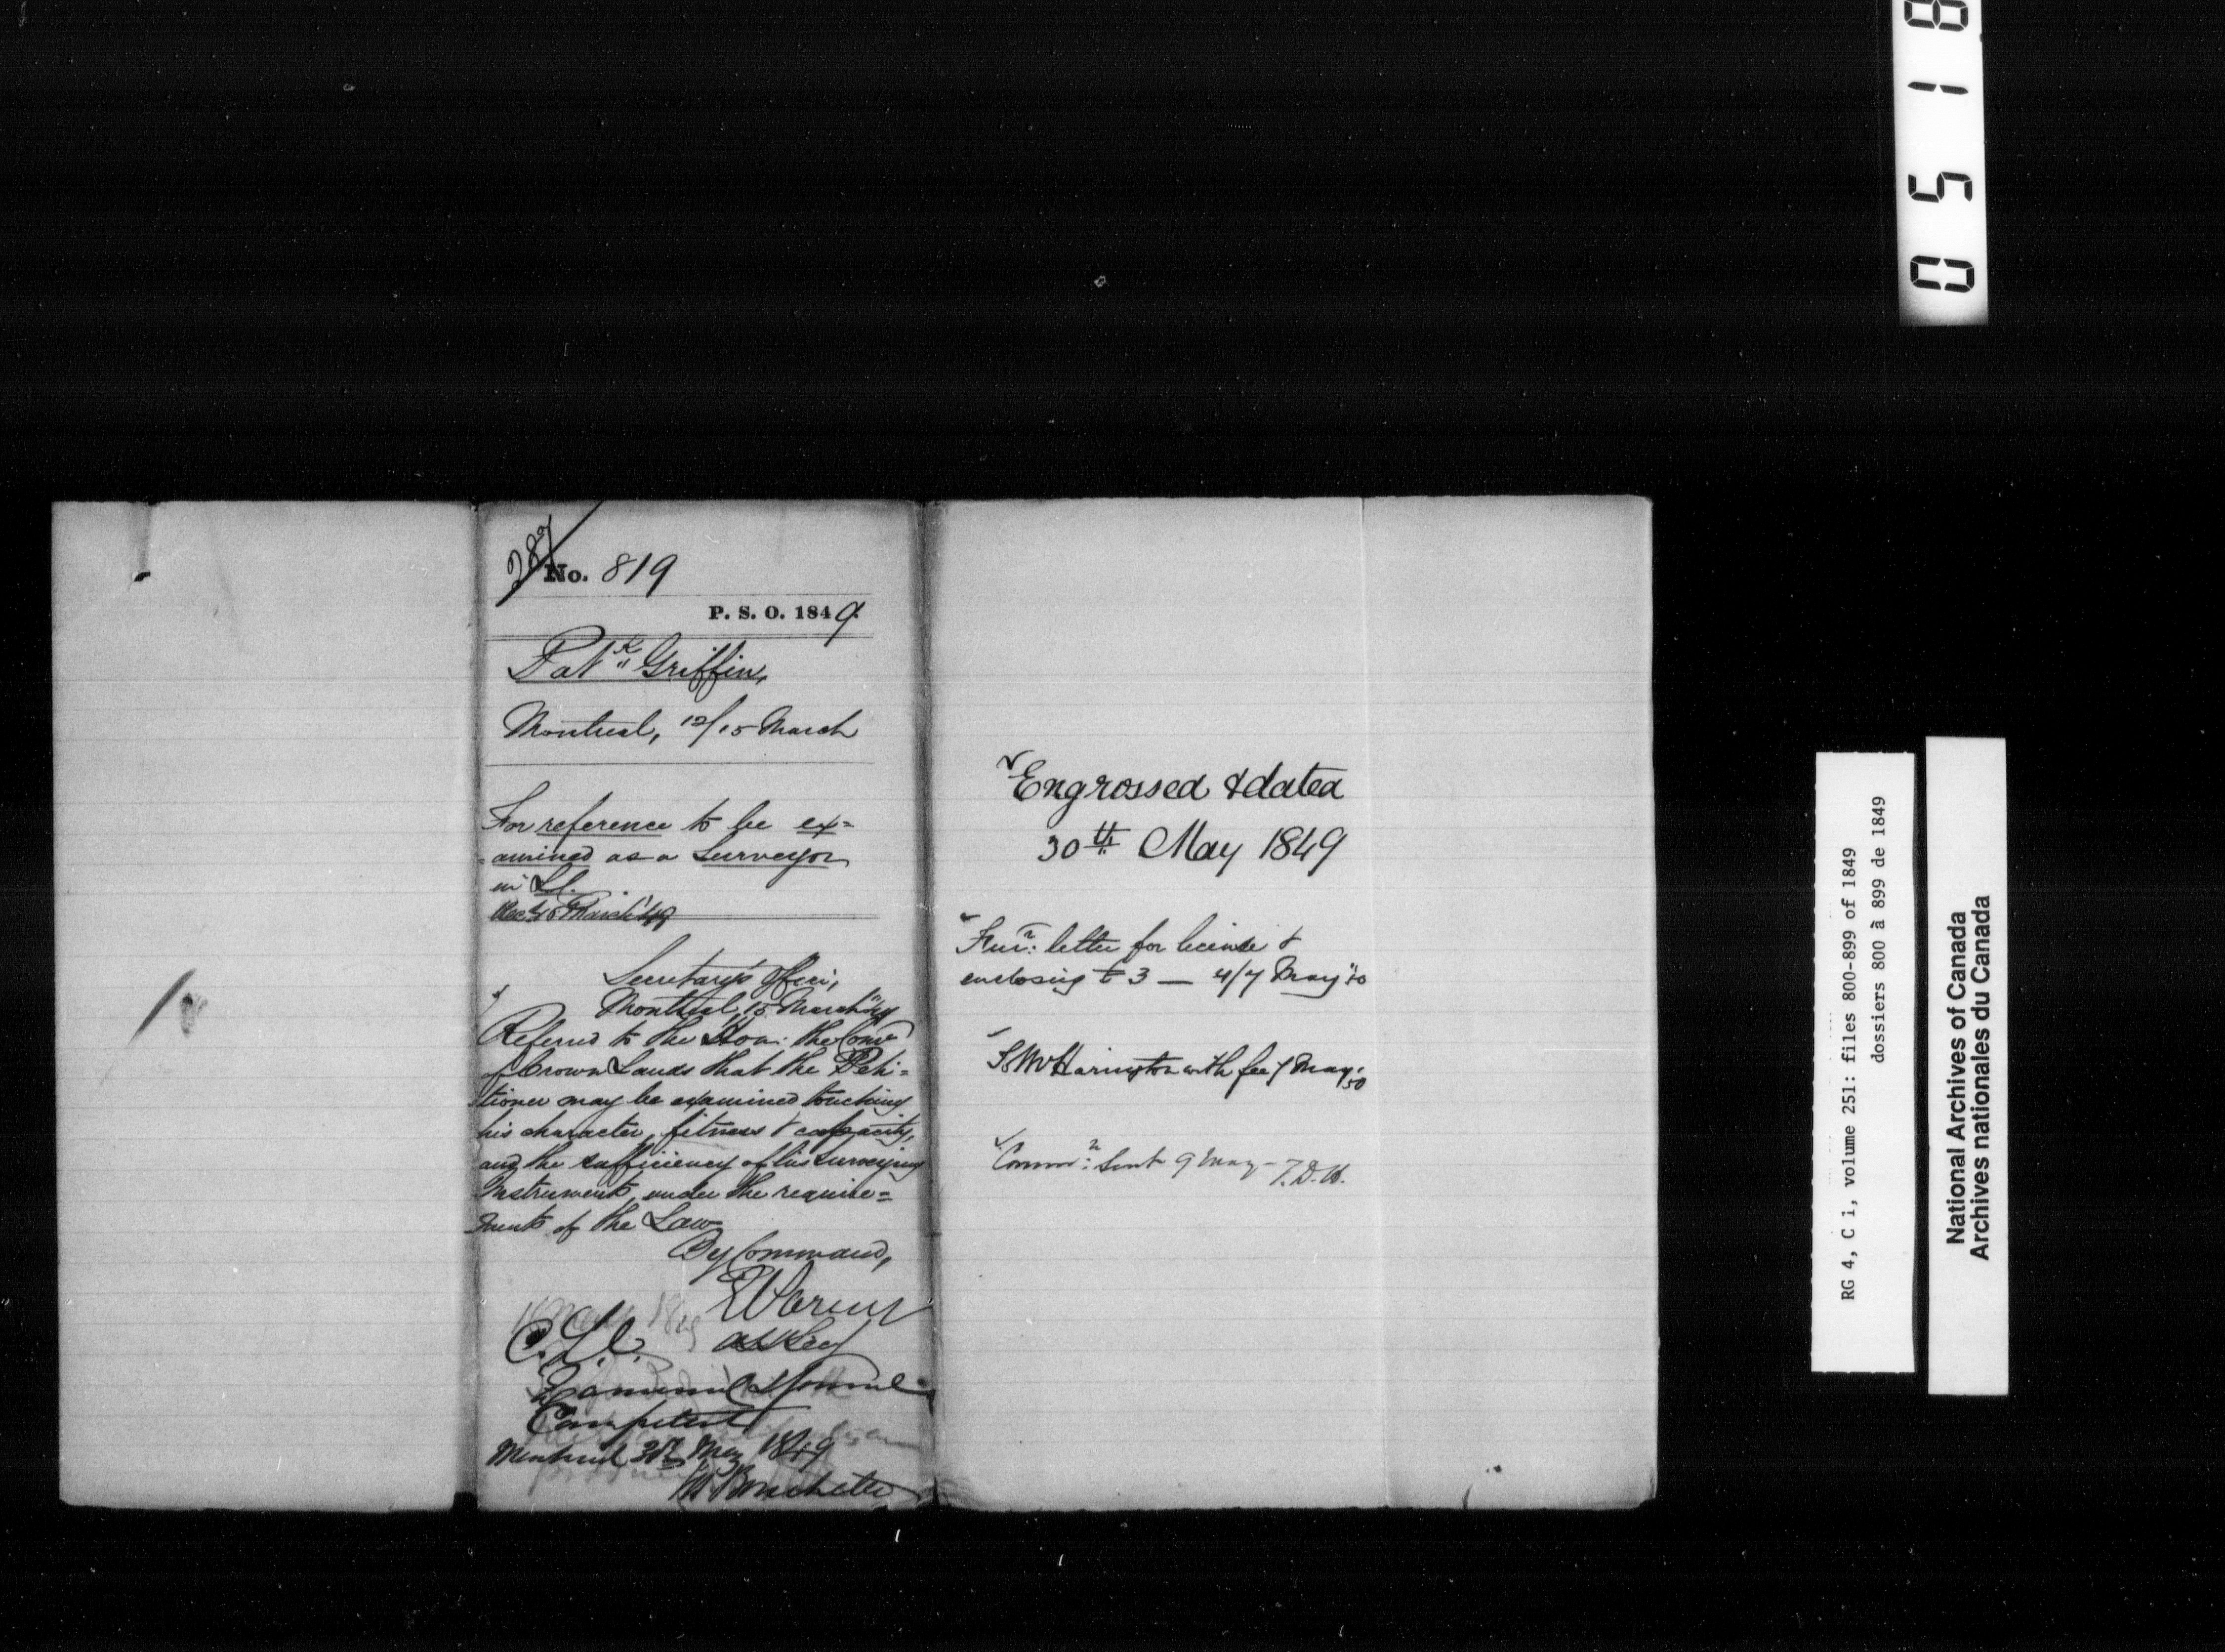 287
No. 819
P. S. O. 1849.
Pat.k Griffin,
Montreal, 12/15 March
For reference to be ex=
=amined as a Surveyor
in L.C.
Rec'd 15 March '49
Secretary's Office,
Montreal, 15 March '49
Referred to the Hon: the Comr
of Crown Lands that the Peti=
tioner may be examined touching
his character, fitness & capacity,
and the sufficiency of his Surveying
Instruments, under the require=
ments of the Law
By Command,
C.L.C. Asst Secy
Examined & found
Competent
Montreal 30th May 1849
Bouchette
Engrossed & dated
30th May 1849
letter for license &
enclosing £3 — 4/7 May '50
Harington with fee 7 May '50
Commn: Sent 9 May - T.D.H.
0518
RG 4, C 1, volume 251: files 800-899 of 1849
dossiers 800 à 899 de 1849
National Archives of Canada
Archives nationales du Canada